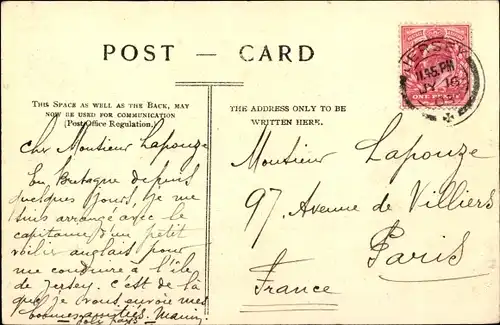 POST — CARD
JERSEY
11.45 PM
JY 16
ONE PENNY
THIS SPACE AS WELL AS THE BACK, MAY
NOW BE USED FOR COMMUNICATION
(Post Office Regulation.)
THE ADDRESS ONLY TO BE
WRITTEN HERE.
Cher Monsieur Lapouze
En Bretagne depuis
quelques jours, je me
suis arrangé avec le
capitaine d'un petit
voilier anglais pour
me conduire à l'île
de Jersey. C'est de là
que je vous envoie mes
bonnes amitiés –
Joli pays –
Monsieur Lapouze
97, Avenue de Villiers
Paris
France